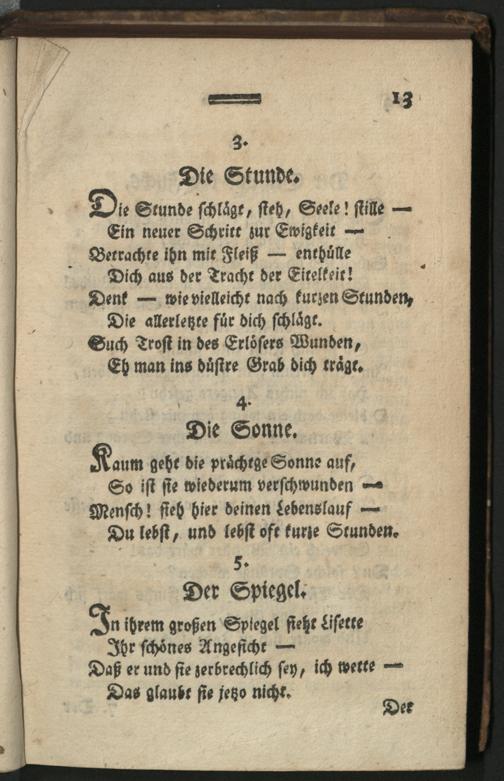 13
3.
Die Stunde.
Die Stunde schlägt, steh, Seele! stille —
Ein neuer Schritt zur Ewigkeit —
Betrachte ihn mit Fleiß — enthülle
Dich aus der Tracht der Eitelkeit!
Denk — wie vielleicht nach kurzen Stunden,
Die allerletzte für dich schlägt.
Such Trost in des Erlösers Wunden,
Eh man ins düstre Grab dich trägt.
4.
Die Sonne.
Kaum geht die prächtge Sonne auf,
So ist sie wiederum verschwunden —
Mensch! sieh hier deinen Lebenslauf —
Du lebst, und lebst oft kurze Stunden.
5.
Der Spiegel.
In ihrem großen Spiegel sieht Lisette
Ihr schönes Angesicht —
Daß er und sie zerbrechlich sey, ich wette —
Das glaubt sie jetzo nicht.
Der